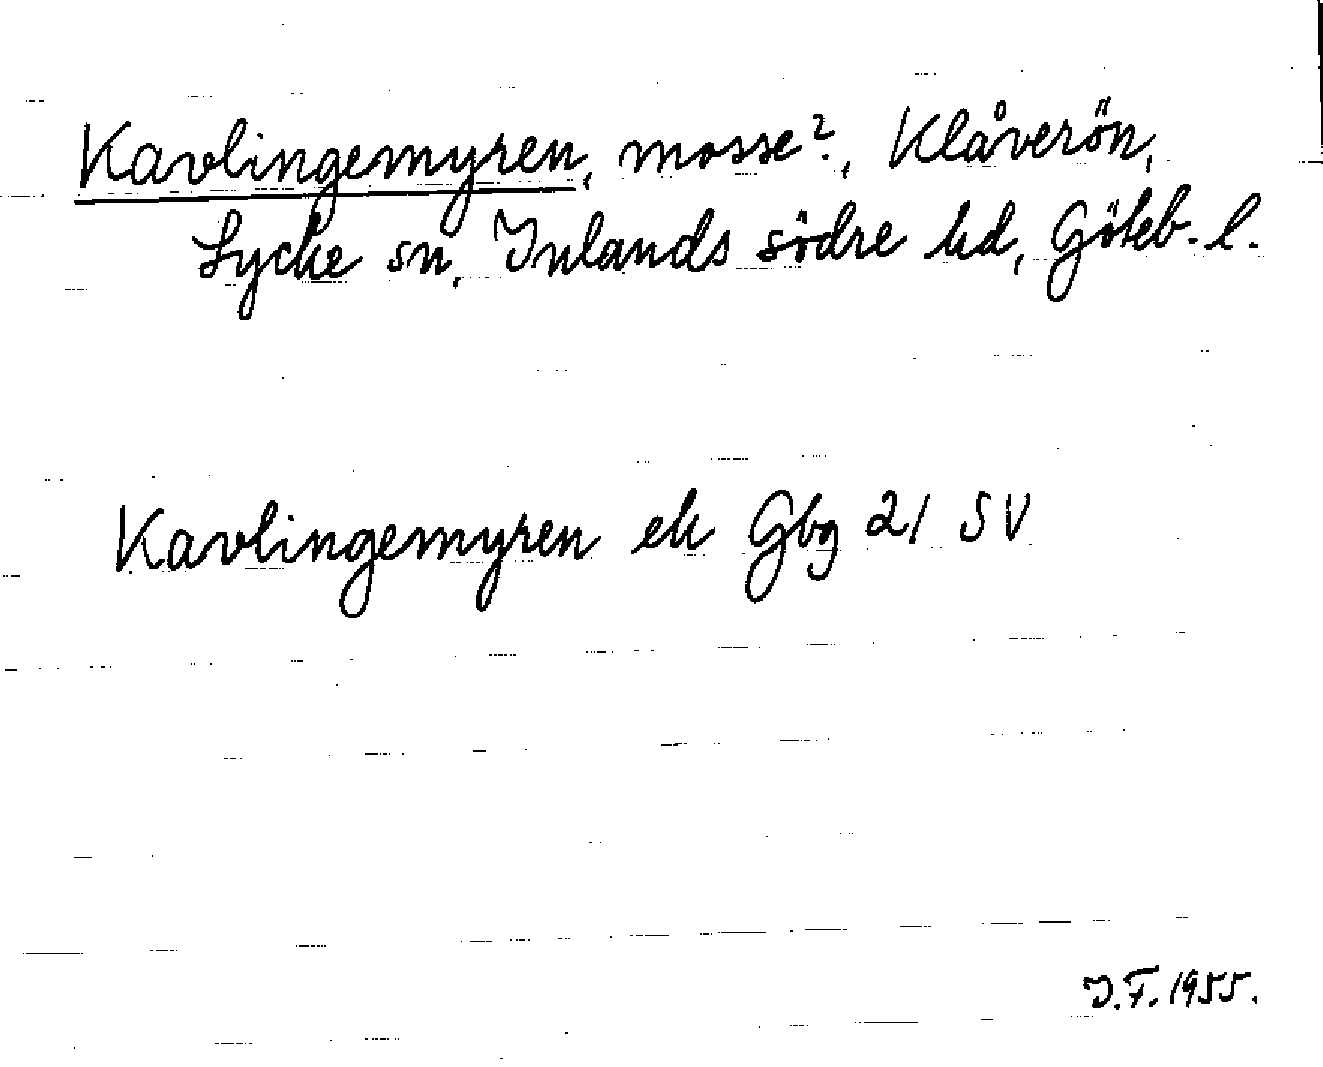 Kavlingemyren, mosse?, Klåverön,
Lycke sn, Inlands södre hd, Göteb. l.
Kavlingemyren ek Gbg 21 SV
I.F. 1955.